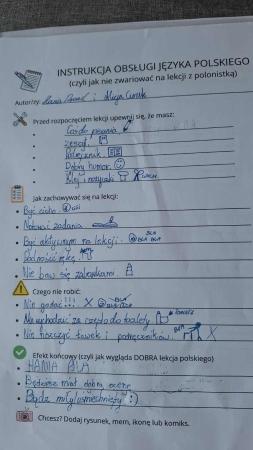 INSTRUKCJA OBSŁUGI JĘZYKA POLSKIEGO
(czyli jak nie zwariować na lekcji z polonistką)
Autorzy: i
Przed rozpoczęciem lekcji upewnij się, że masz:
Coś do pisania
Zeszyt
Podręcznik
Dobry humor
Klej i nożyczki
Jak zachowywać się na lekcji:
Być cicho
Notować zadania
Być aktywnym na lekcji. BLA BLA BLA
Podnosić rękę
Nie baw się zabawkami.
Czego nie robić:
Nie gadać!!! X BLA
Nie wychodzić za często do toalety
Nie niszczyć ławek i podręczników.
Efekt końcowy (czyli jak wygląda DOBRA lekcja polskiego)
Będziesz miał dobrą ocenę
Bądź miły/uśmiechnięty :)
Chcesz? Dodaj rysunek, mem, ikonę lub komiks.